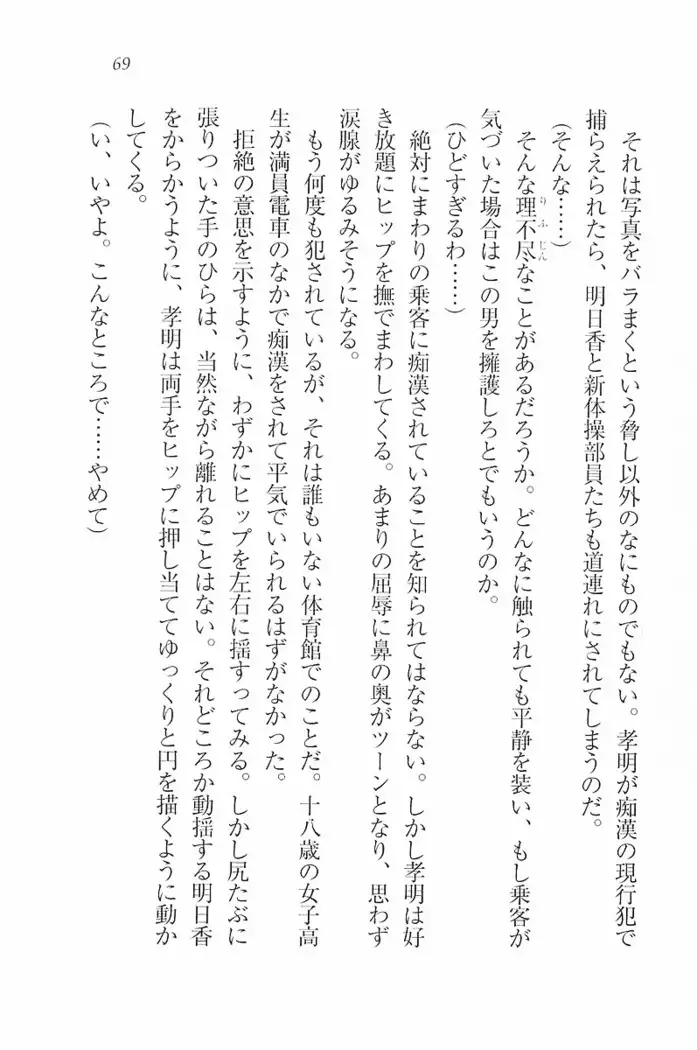 69
それは写真をバラまくという脅し以外のなにものでもない。孝明が痴漢の現行犯で
捕らえられたら、明日香と新体操部員たちも道連れにされてしまうのだ。
(そんな……)
そんな理不尽なことがあるだろうか。どんなに触られても平静を装い、もし乗客が
りふじん
気づいた場合はこの男を擁護しろとでもいうのか。
(ひどすぎるわ……)
絶対にまわりの乗客に痴漢されていることを知られてはならない。しかし孝明は好
き放題にヒップを撫でまわしてくる。あまりの屈辱に鼻の奥がツーンとなり、思わず
涙腺がゆるみそうになる。
もう何度も犯されているが、それは誰もいない体育館でのことだ。十八歳の女子高
生が満員電車のなかで痴漢をされて平気でいられるはずがなかった。
拒絶の意思を示すように、わずかにヒップを左右に揺すってみる。しかし尻たぶに
張りついた手のひらは、当然ながら離れることはない。それどころか動揺する明日香
をからかうように、孝明は両手をヒップに押し当ててゆっくりと円を描くように動か
してくる。
(い、いやよ。こんなところで……やめて)